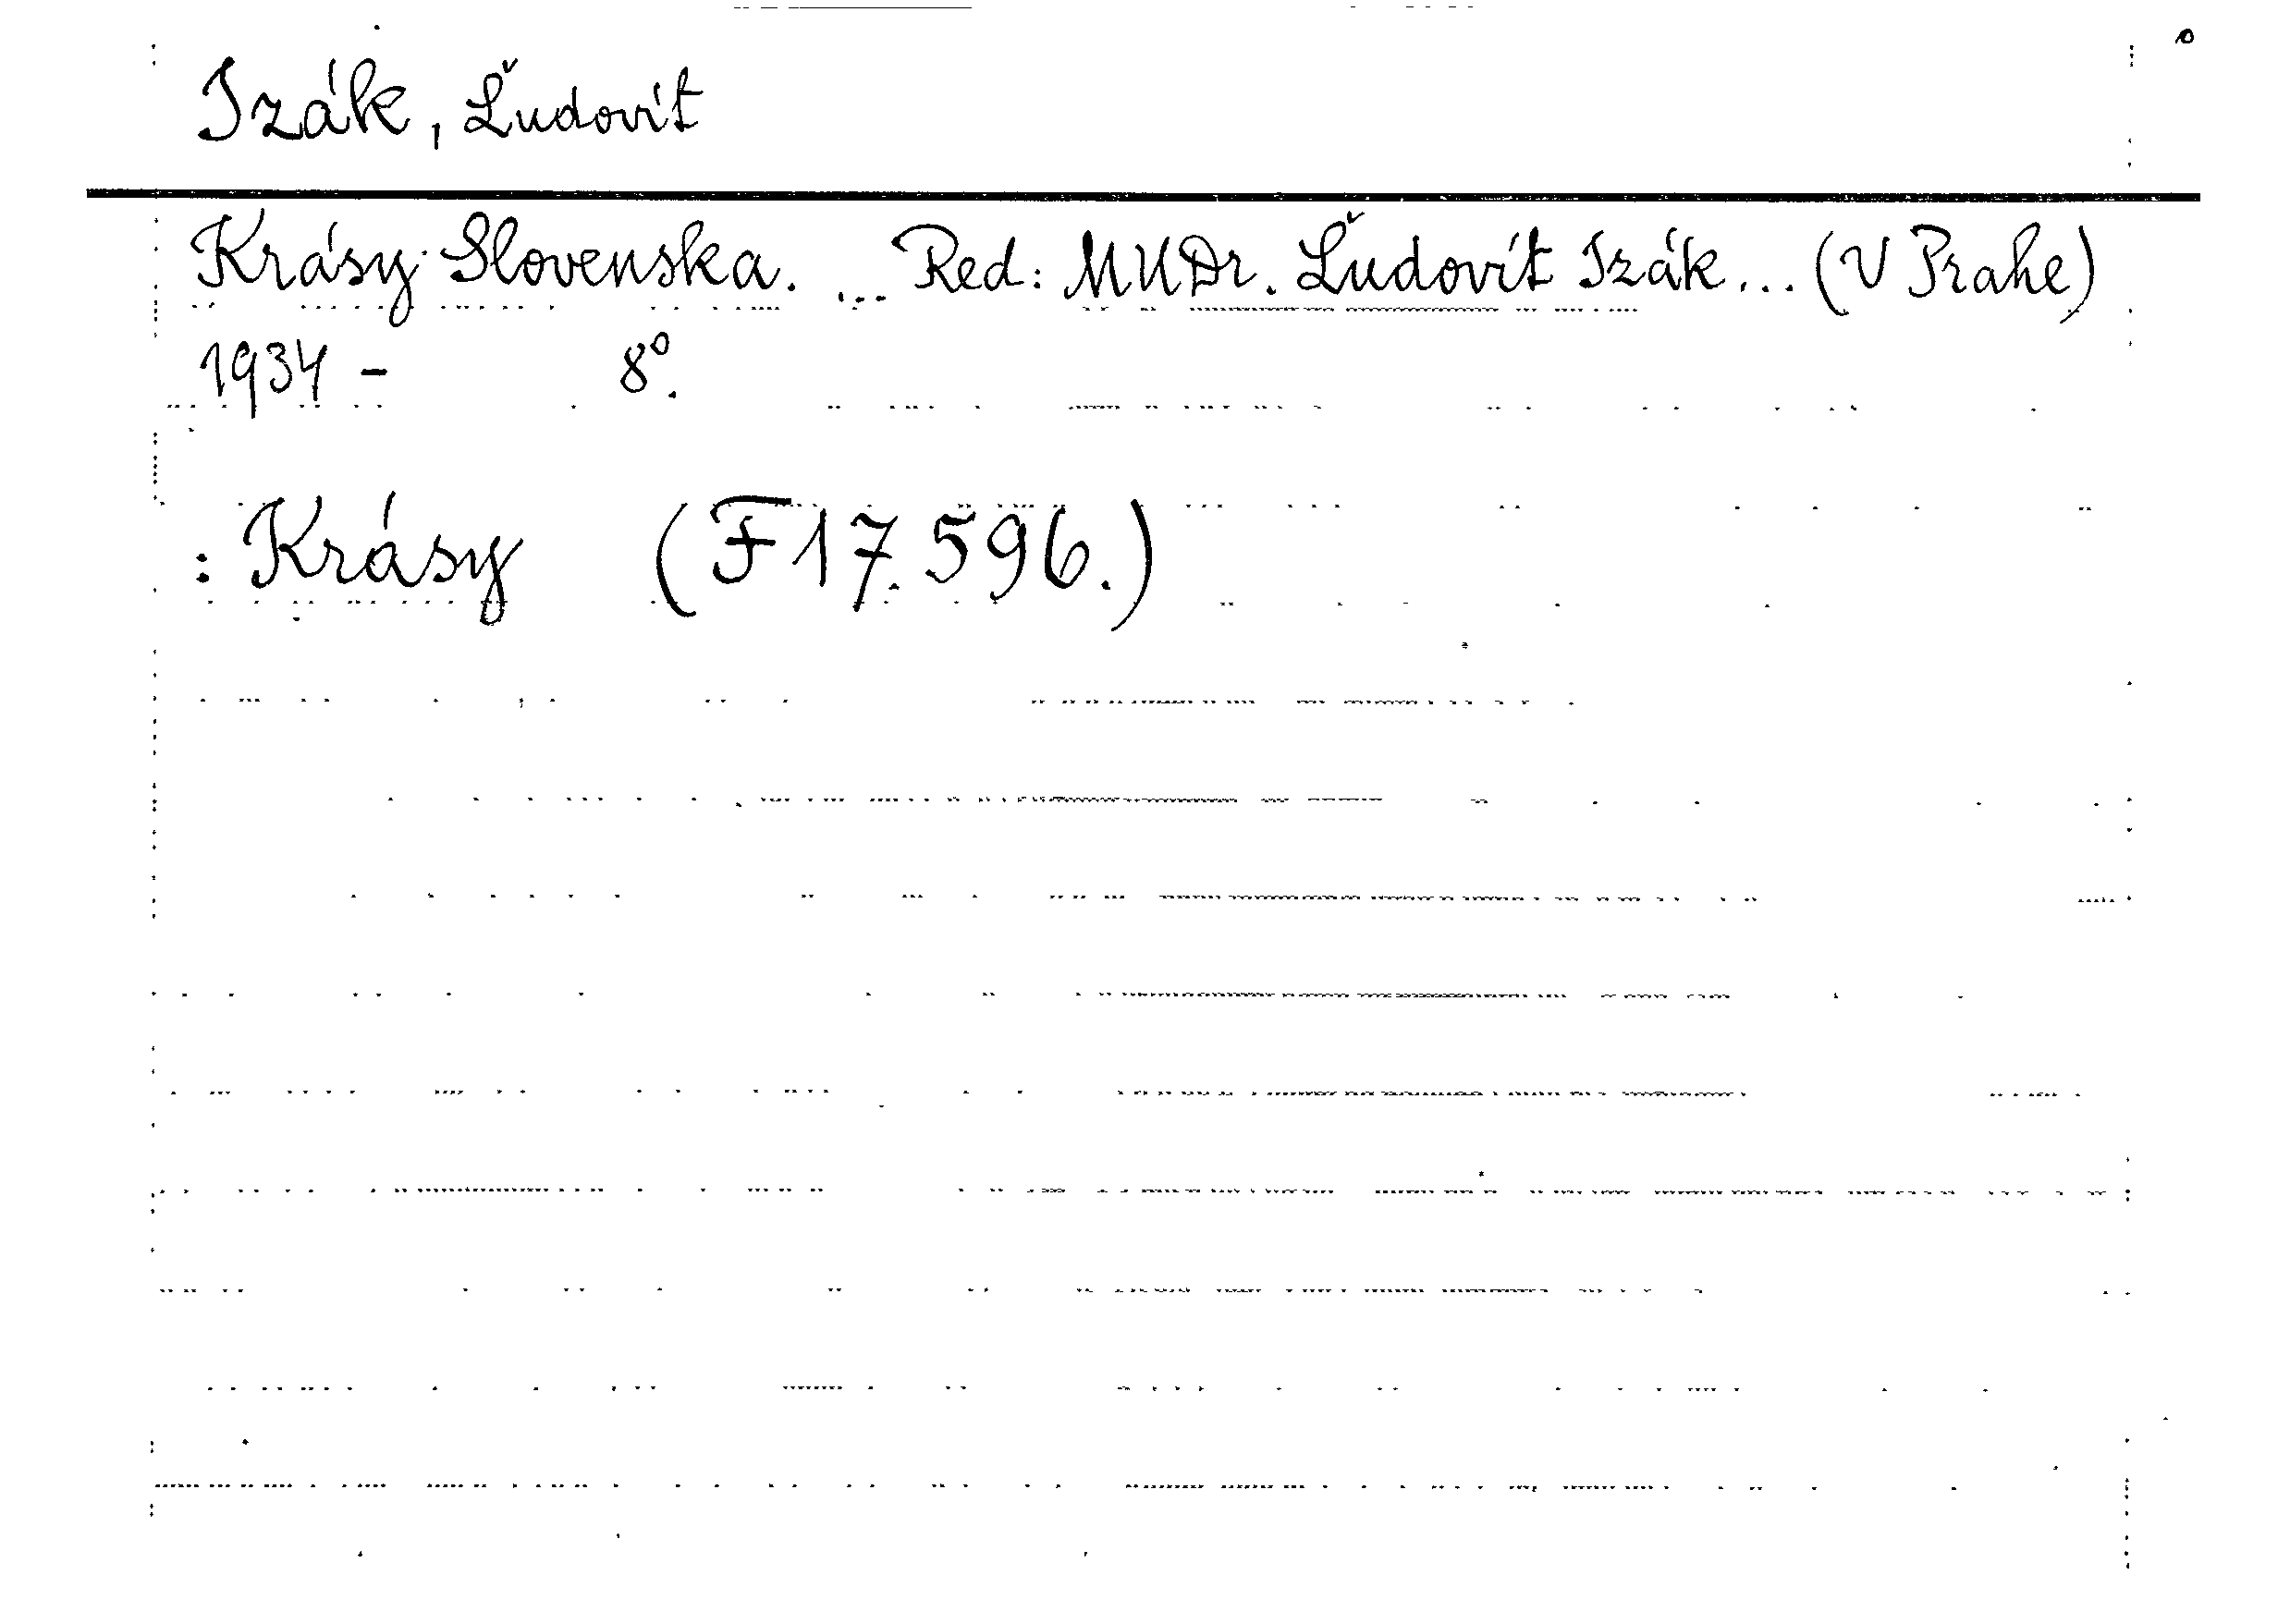 Izák, Ľudovít
Krásy Slovenska. ... Red: MUDr. Ľudovít Izák... (V Prahe)
1934 - 8°.
: Krásy (F 17.596.)